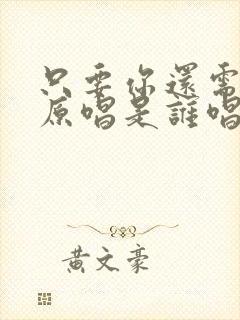 只要你還需
原唱是誰唱
黃文豪